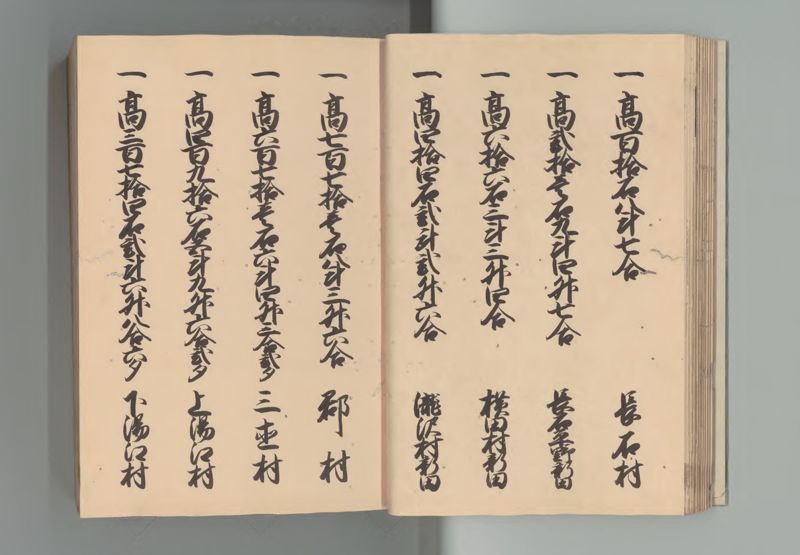 一 高百拾石八斗七合 長石村
一 高弐拾壱石九斗四升七合 長石原野新田
一 高六拾六石三斗三升四合 横田村新田
一 高四拾四石弐斗弐升六合 瀧沢村新田
一 高七百七拾壱石八斗三升六合 郡村
一 高六百七拾壱石六斗四升三合弐夕 三 村
一 高四百九拾六石壱斗九升六合弐夕 上湯江村
一 高三百七拾四石弐斗六升八合六夕 下湯江村